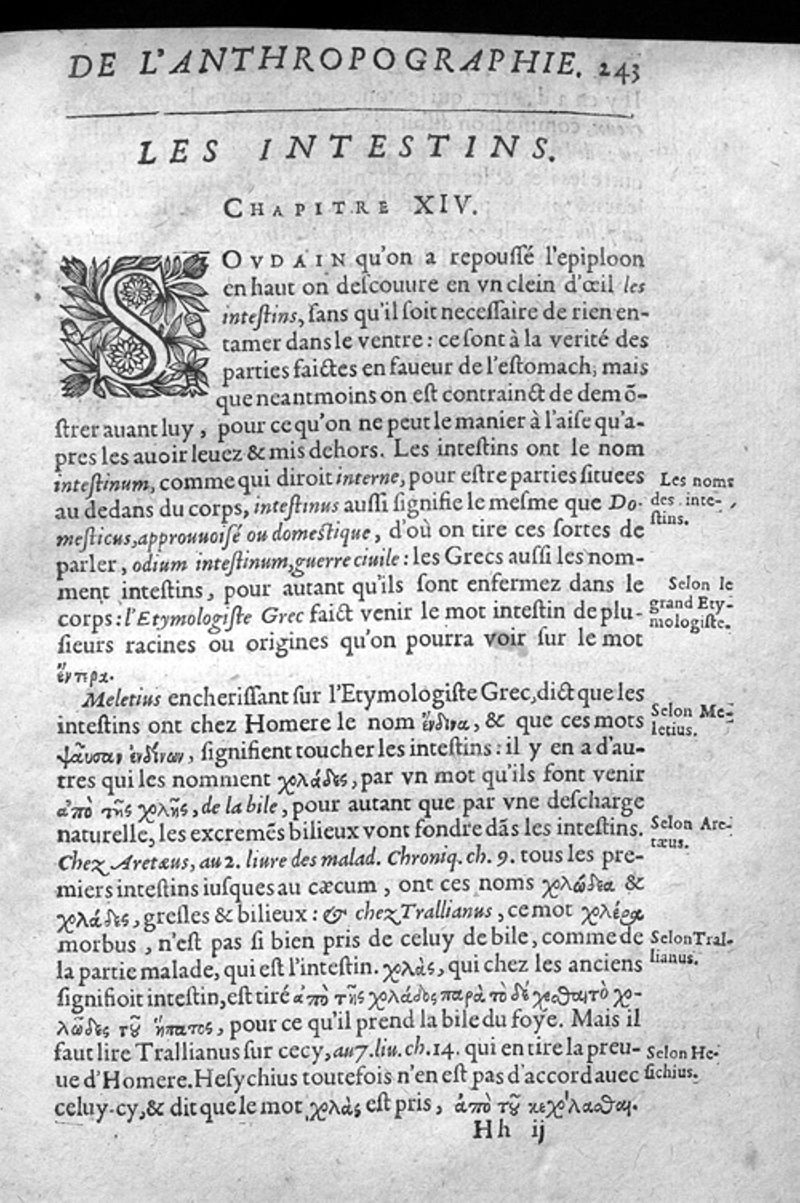 DE L'ANTHROPOGRAPHIE. 243
LES INTESTINS.
CHAPITRE XIV.
SOVDAIN qu'on a repouſſé l'epiploon
en haut on deſcouure en vn clein d'œil les
inteſtins, ſans qu'il ſoit neceſſaire de rien en-
tamer dans le ventre : ce ſont à la verité des
parties faictes en faueur de l'eſtomach, mais
que neantmoins on eſt contrainct de demõ-
ſtrer auant luy, pour ce qu'on ne peut le manier à l'aiſe qu'a-
pres les auoir leuez & mis dehors. Les inteſtins ont le nom
inteſtinum, comme qui diroit interne, pour eſtre parties ſituees
Les noms
au dedans du corps, inteſtinus auſſi ſignifie le meſme que Do-
des inte-
meſticus, approuuoiſé ou domeſtique, d'où on tire ces ſortes de
ſtins.
parler, odium inteſtinum, guerre ciuile : les Grecs auſſi les nom-
ment inteſtins, pour autant qu'ils ſont enfermez dans le
Selon le
corps : l'Etymologiſte Grec faict venir le mot inteſtin de plu-
grand Ety-
mologiſte.
ſieurs racines ou origines qu'on pourra voir ſur le mot
ἔντερα.
Meletius encheriſſant ſur l'Etymologiſte Grec, dict que les
inteſtins ont chez Homere le nom ἔνδινα, & que ces mots
Selon Me-
letius.
ψαῦσαν ἐνδίνων, ſignifient toucher les inteſtins : il y en a d'au-
tres qui les nomment χολάδες, par vn mot qu'ils font venir
ἀπὸ τῆς χολῆς, de la bile, pour autant que par vne deſcharge
naturelle, les excremẽs bilieux vont fondre dãs les inteſtins.
Selon Are-
tæus.
Chez Aretæus, au 2. liure des malad. Chroniq. ch. 9. tous les pre-
miers inteſtins iuſques au cæcum, ont ces noms χολώδεα &
χολάδες, greſles & bilieux : & chez Trallianus, ce mot χολέρα
morbus, n'eſt pas ſi bien pris de celuy de bile, comme de
Selon Tral-
lianus.
la partie malade, qui eſt l'inteſtin. χολὰς, qui chez les anciens
ſignifioit inteſtin, eſt tiré ἀπὸ τῆς χολάδος παρὰ τὸ δέχεσθαι τὸ χο-
λῶδες τοῦ ἥπατος, pour ce qu'il prend la bile du foye. Mais il
faut lire Trallianus ſur cecy, au 7. liu. ch. 14. qui en tire la preu-
Selon He-
ſichius.
ue d'Homere. Heſychius toutefois n'en eſt pas d'accord auec
celuy-cy, & dit que le mot χολὰς eſt pris, ἀπὸ τοῦ κεχολᾶσθαι.
Hh ij